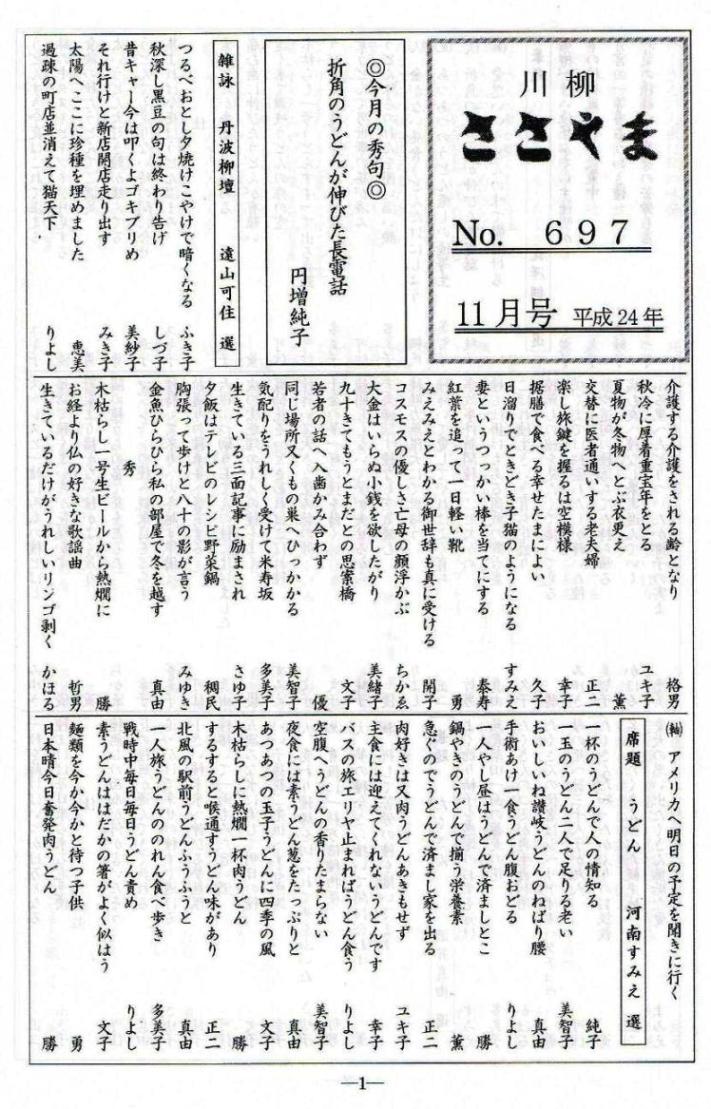 川柳
ささやま
No. 697
11月号 平成24年
◎今月の秀句◎
折角のうどんが伸びた長電話
円増純子
雑詠 丹波柳壇 遠山可住 選
つるべおとし夕焼けこやけで暗くなる ふき子
秋深し黒豆の句は終わり告げ しづ子
昔キャー今は叩くよゴキブリめ 美紗子
それ行けと新店開店走り出す みき子
太陽へここに珍種を埋めました 恵美
過疎の町店並消えて猫天下 りよし
介護する介護をされる齢となり 格男
秋冷に厚着重宝年をとる ユキ子
夏物が冬物へとぶ衣更え 薫
交替に医者通いする老夫婦 正二
楽し旅鍵を握るは空模様 幸子
据膳で食べる幸せたまによい 久子
日溜りでときどき子猫のようになる すみえ
妻というつっかい棒を当てにする 泰寿
紅葉を追って一日軽い靴 勇
みえみえとわかる御世辞も真に受ける 開子
コスモスの優しさ亡母の顔浮かぶ ちかゑ
大金はいらぬ小銭を欲したがり 美緒子
九十きてもうとまだとの思索橋 文子
若者の話へ入歯かみ合わず 優
同じ場所又くもの巣へひっかかる 美智子
気配りをうれしく受けて米寿坂 多美子
生きている三面記事に励まされ さゆ子
夕飯はテレビのレシピ野菜鍋 稠民
胸張って歩けと八十の影が言う みゆき
金魚ひらひら私の部屋で冬を越す 真由
秀
木枯らし一号生ビールから熱燗に 勝
お経より仏の好きな歌謡曲 哲男
生きているだけがうれしいリンゴ剥く かほる
(軸) アメリカへ明日の予定を聞きに行く
席題 うどん 河南すみえ 選
一杯のうどんで人の情知る 純子
一玉のうどん二人で足りる老い 美智子
おいしいね讃岐うどんのねばり腰 真由
手術あけ一食うどん腹おどる りよし
一人やし昼はうどんで済ましとこ 勝
鍋やきのうどんで揃う栄養素 薫
急ぐのでうどんで済まし家を出る 正二
肉好きは又肉うどんあきもせず ユキ子
主食には迎えてくれないうどんです 幸子
バスの旅エリヤ止まればうどん食う りよし
空腹へうどんの香りたまらない 美智子
夜食には素うどん葱をたっぷりと 真由
あつあつの玉子うどんに四季の風 文子
木枯らしに熱燗一杯肉うどん 勝
するすると喉通すうどん味があり 正二
北風の駅前うどんふうふうと 真由
一人旅うどんののれん食べ歩き 多美子
戦時中毎日毎日うどん責め りよし
素うどんははだかの箸がよく似はう 文子
麺類を今か今かと待つ子供 勇
日本晴今日奮発肉うどん 勝
—1—